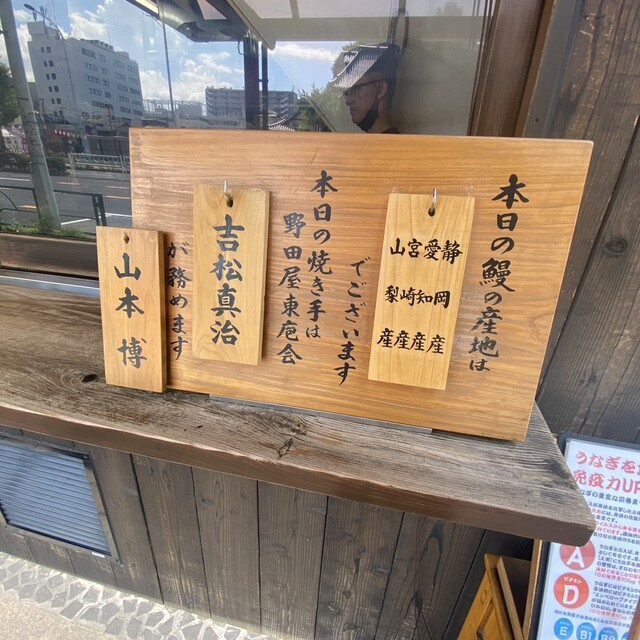 本日の鰻の産地は
静岡産
愛知産
宮崎産
山梨産
でございます
本日の焼き手は
野田屋東庖会
吉松真治
が務めます
山本博
うなぎを
免疫力UP
A
ビタミン
D
E
B1